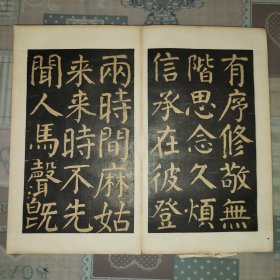 有序修敬無
階思念久煩
信承在彼登
兩時間麻姑
来来時不先
聞人馬聲既